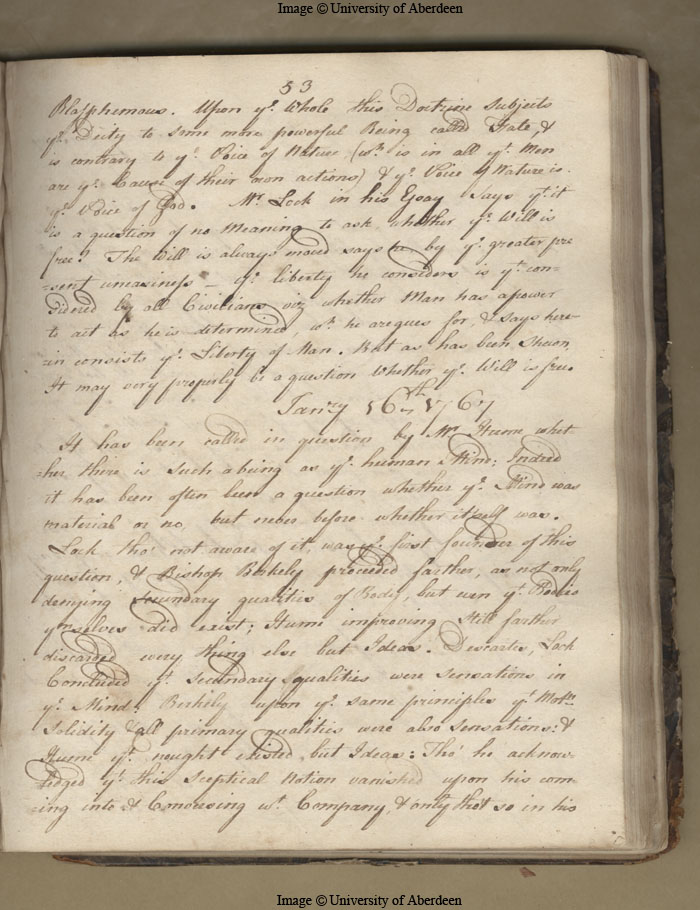 Image © University of Aberdeen
53
Blasphemous. Upon ye. Whole this Doctrine Subjects
ye. Deity to some more powerful Being called Fate, &
is contrary to ye. Voice of Nature (wch. is in all ye. Men
are ye. Cause of their own actions) & ye. Voice of Nature is
ye. Voice of God. Mr. Lock in his Essay Says yt. it
is a question of no Meaning to ask whether ye. Will is
free? The Will is always moved says he by ye. greater pre
=sent uneasiness – ye. liberty he considers is yt. con=
sidered by all Civilians viz whether Man has a power
to act as he is determined, wch. he argues for, & says here
=in consists ye. Liberty of Man. But as has been Shewn,
It may very properly be a question Whether ye. Will is free.
Janry 16th 1767
It has been called in question by Mr. Hume whet
=her there is Such a being as ye. human Mind; Indeed
it has been often been a question whether ye. Mind was
material or no, but never before whether itself was.
Lock tho' not aware of it, was ye. first founder of this
question, & Bishop Berkely proceeded farther, as not only
denying Secundary qualities of Body, but even yt. Bodies
ymselves did exist; Hume improving Still farther
discarded every thing else but Ideas. Descartes, Lock
Concluded yt. Secundary qualities were Sensations in
ye. Mind: Berkely upon ye. same principles yt. Motn.
Solidity & all primary qualities were also Sensations: &
Hume yt. nought existed but Ideas: Tho' he acknow
=ledged yt. this Sceptical Notion vanished upon his com
=ing into & Conversing wt. Company, & only that so in his
Image © University of Aberdeen